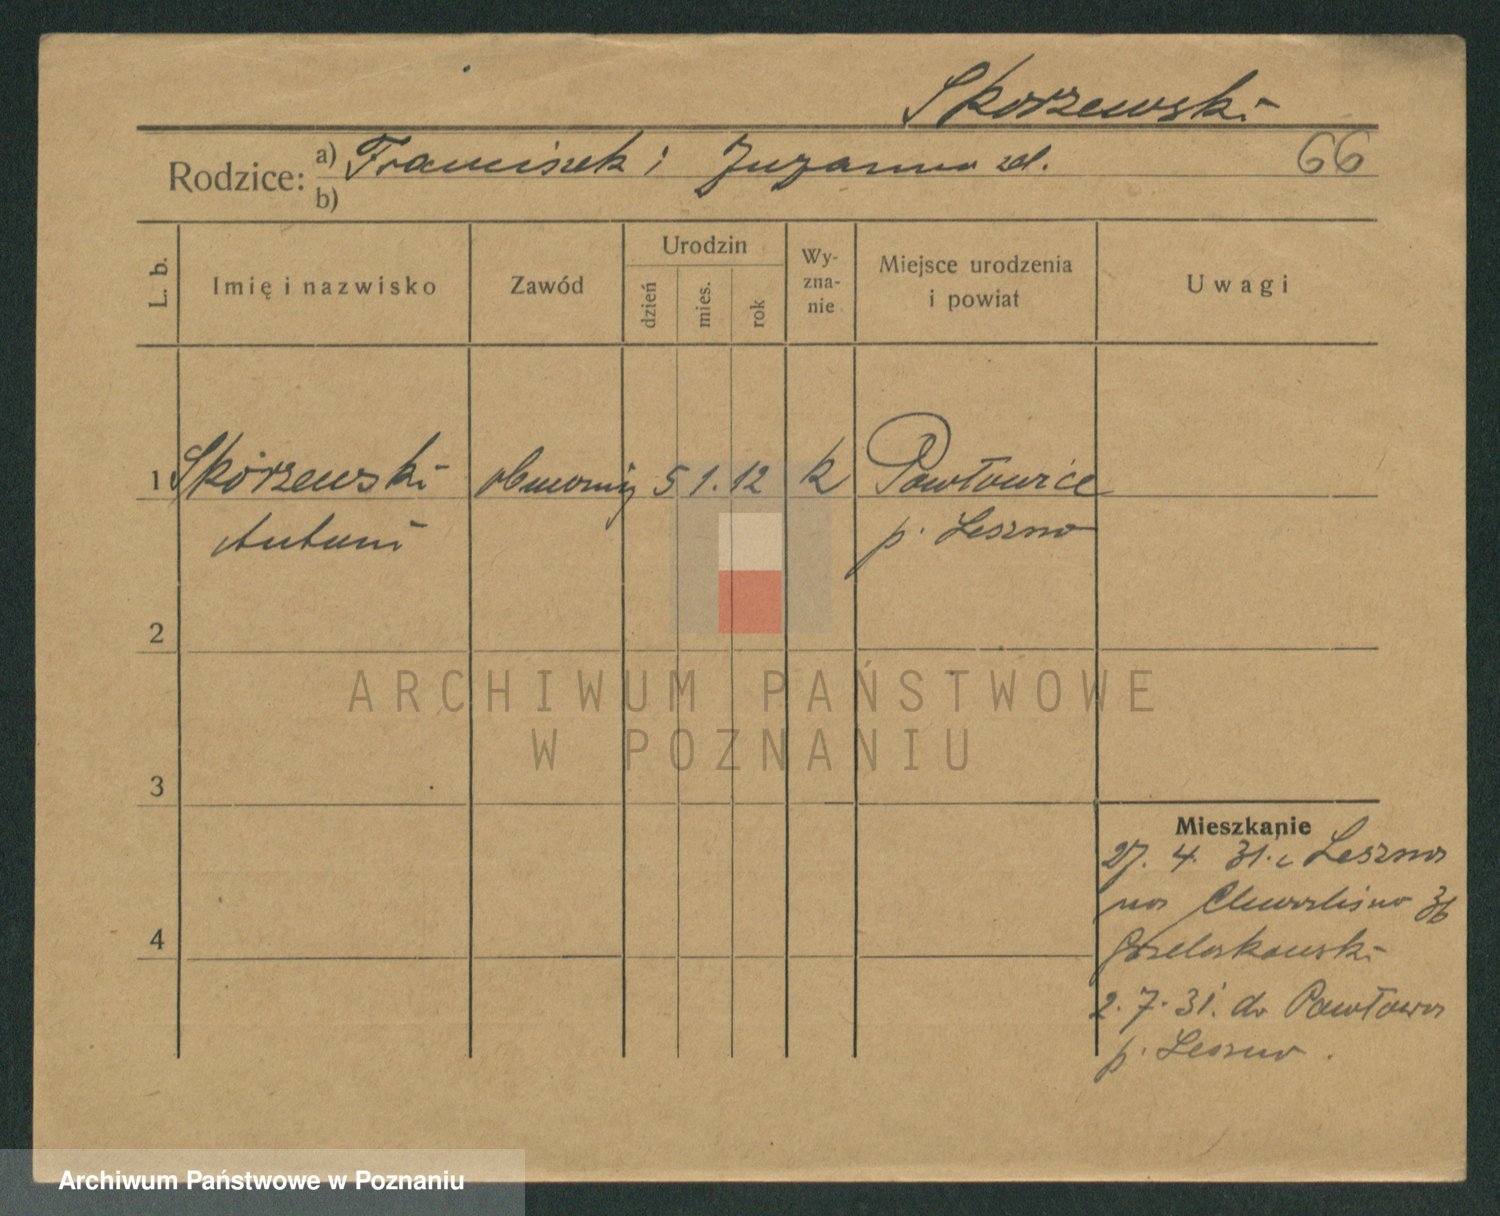 Skorzewski
Rodzice: a) Franciszek i Zuzanna zd. 66
b)
L. b. Imię i nazwisko Zawód Urodzin dzień mies. rok Wy-zna-nie Miejsce urodzenia i powiat Uwagi
1 Skórzewski 5 1. 12 k Pawłowice
Antoni p. Leszno
2
ARCHIWUM PAŃSTWOWE
W POZNANIU
3
Mieszkanie
27. 4. 31. z Leszno
36
4
2. 7. 31. do
p. Leszno.
Archiwum Państwowe w Poznaniu